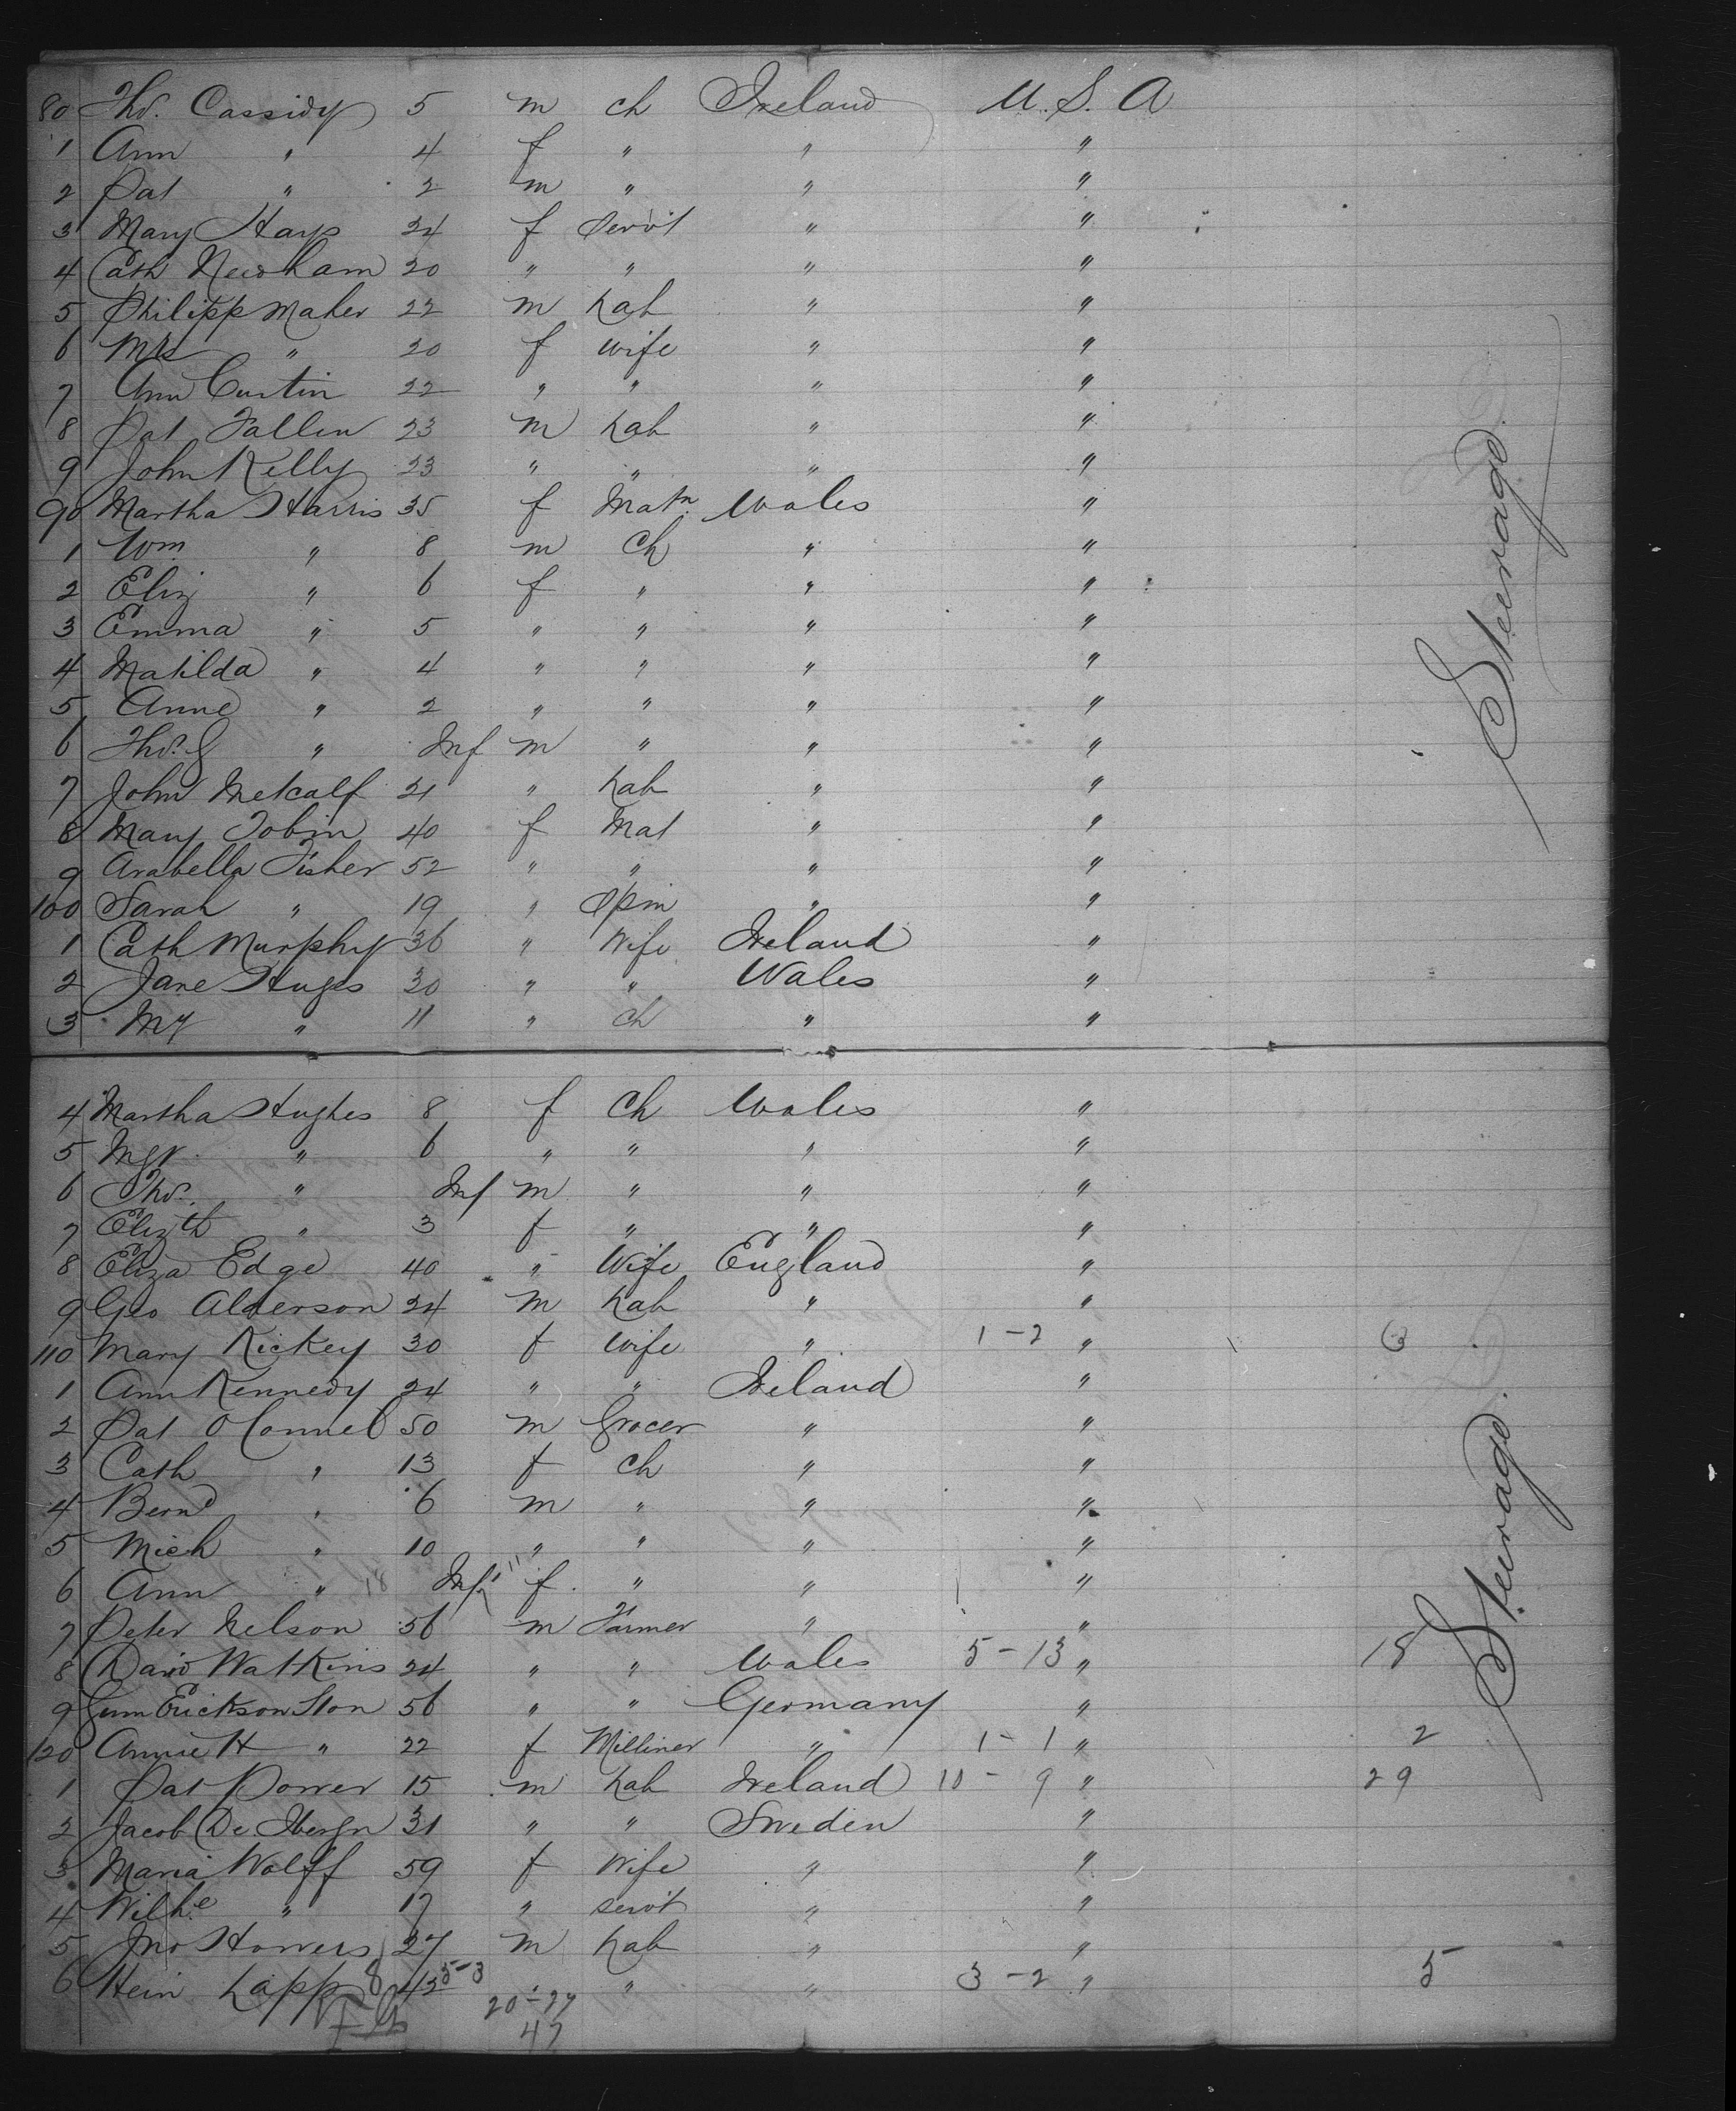 80 Thos. Cassidy 5 m ch Ireland U. S. A
1 Ann " 4 f " " "
2 Pat " 2 m " " "
3 Mary Hays 24 f Servt " "
4 Cath Newham 20 " " " "
5 Philipp Maher 22 m Lab " "
6 Mrs " 20 f wife " "
7 Ann Curtin 22 " " " "
8 Pat Fallen 23 m Lab " "
9 John Kelly 23 " " " "
90 Martha Harris 35 f Matn Wales "
1 Wm " 8 m Ch " "
2 Eliz " 6 f " " "
3 Emma " 5 " " " "
4 Matilda " 4 " " " "
5 Anne " 2 " " " "
6 Thos. G " Inf m " " "
7 John Metcalf 21 " Lab " "
8 Mary Tobin 40 f Mat " "
9 Arabella Fisher 52 " " " "
100 Sarah " 19 " Spin " "
1 Cath Murphy 36 " Wife Ireland "
2 Jane Huges 30 " " Wales "
3 My " 11 " ch " "
Steerage
4 Martha Hughes 8 f Ch Wales "
5 Mgt " 6 " " " "
6 Thos. " Inf m " " "
7 Elizth " 3 f " " "
8 Eliza Edge 40 " Wife England "
9 Geo Alderson 24 m Lab " "
110 Mary Rickey 30 f Wife " 1-2 " 3
1 Ann Kennedy 24 " " Ireland "
2 Pat O Connel 50 m Grocer " "
3 Cath " 13 f Ch " "
4 Bernd " 6 m " " "
5 Mich " 10 " " " "
6 Ann " 18 Inf 11 f " " "
7 Peter Nelson 56 m Farmer " "
8 David Watkins 24 " " Wales 5-13 " 18
9 Erickson Ston 56 " " Germany "
120 Annie H " 22 f Milliner " 1-1 " 2
1 Pat Power 15 m Lab Ireland 10-9 " 29
2 Jacob De 31 " " Sweden "
3 Maria Wolff 59 f Wife " "
4 Wilhe " 17 " servt " "
5 Jno Howers 27 m Lab " "
6 Hein Lapp 8 43 5-3 " " " 3-2 " 5
20-27
47
Steerage